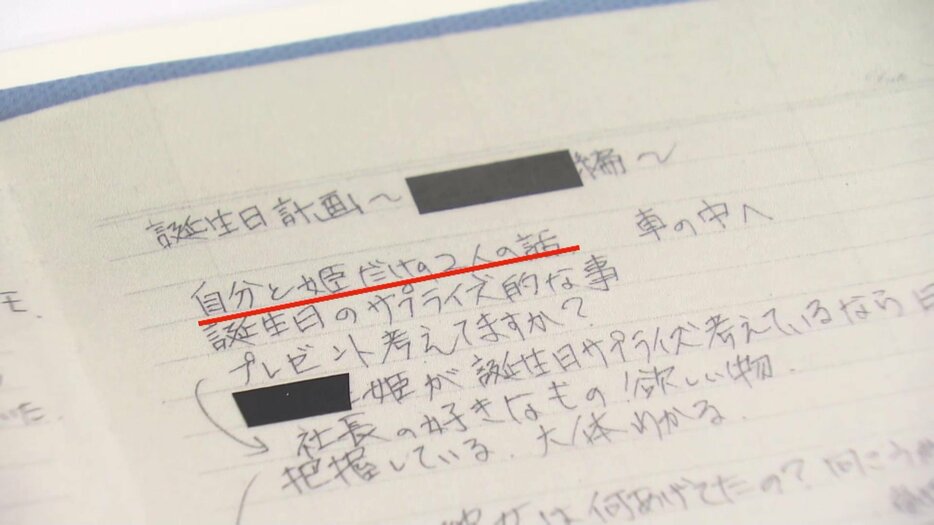 誕生日計画〜 編〜
車の中へ
自分と姫だけの2人の話
誕生日のサプライズ的な事
プレゼント考えてますか?
姫が誕生日サプライズ考えているなら
社長の好きなもの!欲しい物.
把握している.大体わかる.
は何あげてたの?向こう
モ.